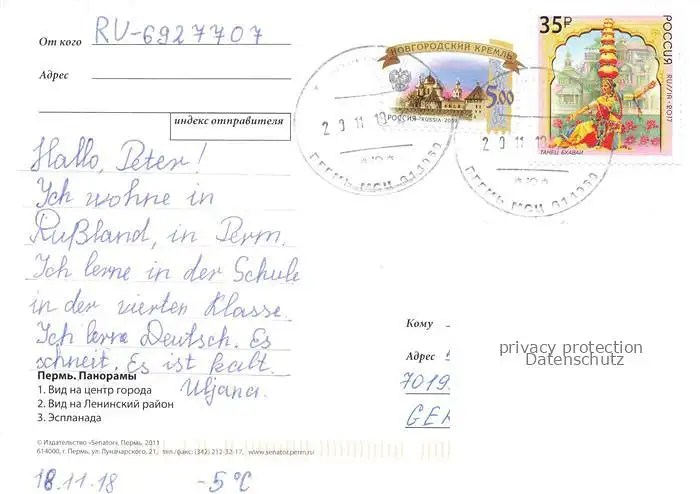 От кого RU-6927707
Адрес
индекс отправителя
НОВГОРОДСКИЙ КРЕМЛЬ
5.00
РОССИЯ • RUSSIA • 2009
35₽
РОССИЯ
RUSSIA • 2017
ТАНЕЦ БХАВАИ
ПЕРМЬ МСЦ
ПЕРМЬ МСЦ
Hallo, Peter!
Ich wohne in
Rußland, in Perm.
Ich lerne in der Schule
in der vierten Klasse.
Ich lerne Deutsch. Es
schneit. Es ist kalt.
Uljana.
Кому
Адрес
privacy protection
Datenschutz
7019
GER
Пермь. Панорамы
1. Вид на центр города
2. Вид на Ленинский район
3. Эспланада
© Издательство «Senator», Пермь, 2011
614000, г. Пермь, ул. Луначарского, 21, тел./факс: (342) 212-32-17, www.senator.perm.ru
18.11.18 -5°C